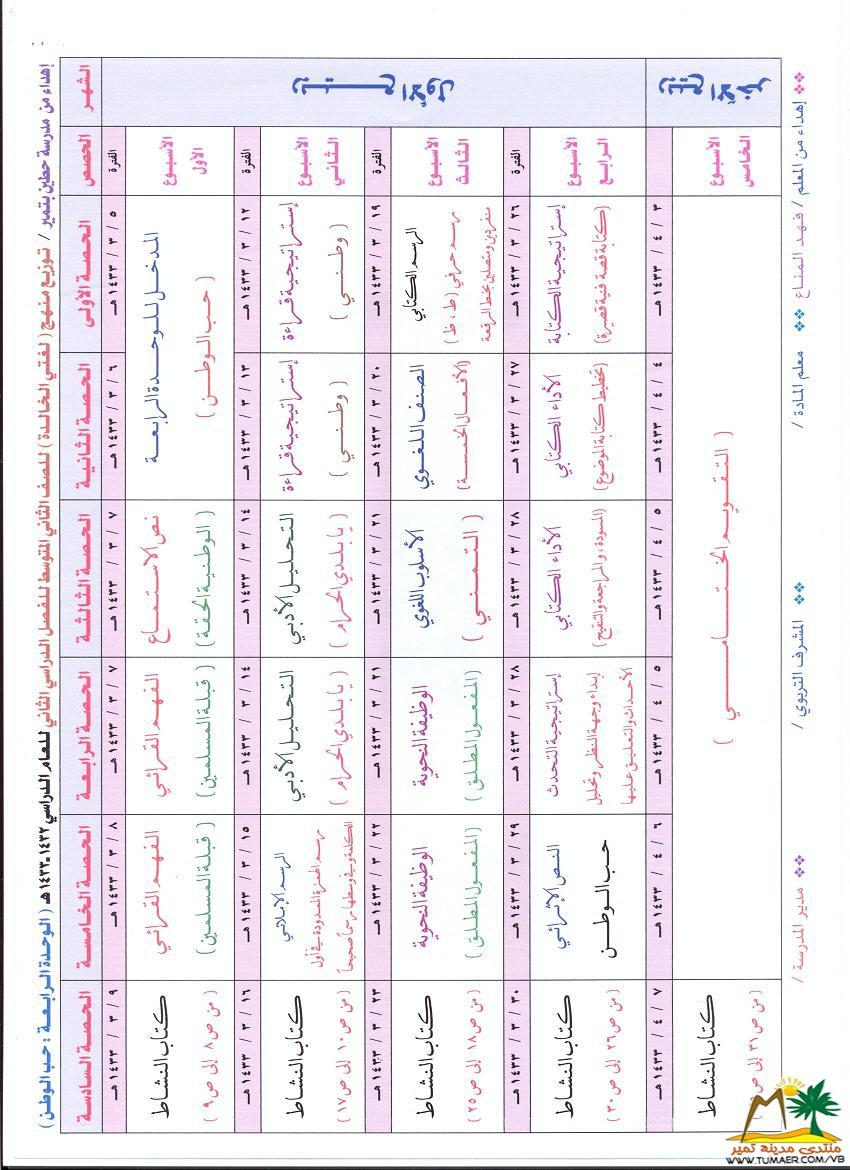 إهداء من مدرسة حطين بتمير / توزيع منهج ( لغتي الخالدة ) للصف الثاني المتوسط للفصل الدراسي الثاني للعام الدراسي ١٤٣٢-١٤٣٣هـ ( الوحدة الرابعة : حب الوطن )
الشهر
ربيع الأول
ربيع الآخر
الحصص
الحصة الأولى
الحصة الثانية
الحصة الثالثة
الحصة الرابعة
الحصة الخامسة
الحصة السادسة
الفترة
٥ / ٣ / ١٤٣٣ هـ
٦ / ٣ / ١٤٣٣ هـ
٧ / ٣ / ١٤٣٣ هـ
٧ / ٣ / ١٤٣٣ هـ
٨ / ٣ / ١٤٣٣ هـ
٩ / ٣ / ١٤٣٣ هـ
الأسبوع
الأول
المدخل للوحدة الرابعة
( حب الوطن )
نص الاستماع
( الوطنية الحقة )
الفهم القرائي
( قبلة المسلمين )
الفهم القرائي
( قبلة المسلمين )
كتاب النشاط
( من ص ٨ إلى ص ٩ )
الفترة
١٢ / ٣ / ١٤٣٣ هـ
١٣ / ٣ / ١٤٣٣ هـ
١٤ / ٣ / ١٤٣٣ هـ
١٤ / ٣ / ١٤٣٣ هـ
١٥ / ٣ / ١٤٣٣ هـ
١٦ / ٣ / ١٤٣٣ هـ
الأسبوع
الثاني
إستراتيجية قراءة
( وطني )
إستراتيجية قراءة
( وطني )
التحليل الأدبي
( يا بلدي الحرام )
التحليل الأدبي
( يا بلدي الحرام )
الرسم الإملائي
رسم الهمزة الممدودة في أول
الكلمة وفي وسطها رسماً صحيحاً
كتاب النشاط
( من ص ١٠ إلى ص ١٧ )
الفترة
١٩ / ٣ / ١٤٣٣ هـ
٢٠ / ٣ / ١٤٣٣ هـ
٢١ / ٣ / ١٤٣٣ هـ
٢١ / ٣ / ١٤٣٣ هـ
٢٢ / ٣ / ١٤٣٣ هـ
٢٣ / ٣ / ١٤٣٣ هـ
الأسبوع
الثالث
الرسم الكتابي
رسم حرفي ( ط ، ظ )
منفردين ومتصلين بخط الرقعة
الصنف اللغوي
( الأفعال الخمسة )
الأسلوب اللغوي
( التمني )
الوظيفة النحوية
( المفعول المطلق )
الوظيفة النحوية
( المفعول المطلق )
كتاب النشاط
( من ص ١٨ إلى ص ٢٥ )
الفترة
٢٦ / ٣ / ١٤٣٣ هـ
٢٧ / ٣ / ١٤٣٣ هـ
٢٨ / ٣ / ١٤٣٣ هـ
٢٨ / ٣ / ١٤٣٣ هـ
٢٩ / ٣ / ١٤٣٣ هـ
٣٠ / ٣ / ١٤٣٣ هـ
الأسبوع
الرابع
إستراتيجية الكتابة
( كتابة قصة فنية قصيرة )
الأداء الكتابي
( تخطيط كتابة الموضوع )
الأداء الكتابي
( المسودة ، والمراجعة والتنقيح )
إستراتيجية التحدث
إبداء وجهة النظر وتحليل
الأحداث والتعليق عليها
النص الإثرائي
حب الوطن
كتاب النشاط
( من ص ٢٦ إلى ص ٣٠ )
٣ / ٤ / ١٤٣٣ هـ
٤ / ٤ / ١٤٣٣ هـ
٥ / ٤ / ١٤٣٣ هـ
٥ / ٤ / ١٤٣٣ هـ
٦ / ٤ / ١٤٣٣ هـ
٧ / ٤ / ١٤٣٣ هـ
الأسبوع
الخامس
( التقويم الختامي )
كتاب النشاط
( من ص ٣١ إلى
إهداء من المعلم / فهد المناع
معلم المادة /
المشرف التربوي /
مدير المدرسة /
منتدى مدينة تمير
WWW.TUMAER.COM/VB